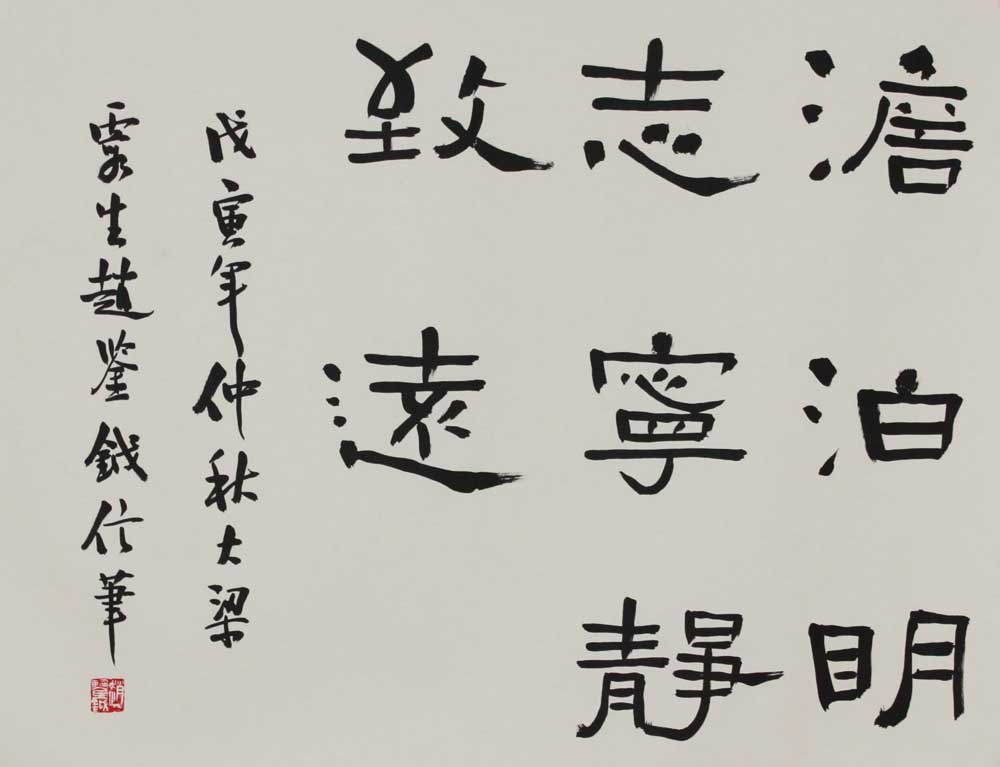 澹泊明
志寧靜
致遠
戊寅年仲秋大梁
霞生趙鑒鉞信筆